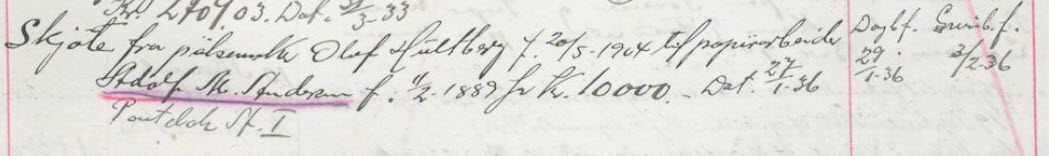 Kr. 2709.03. Dat. 31/3-33
Skjøte fra pølsem. Olaf Hultberg f. 20/5-1904 til papirarbeider Dagbf. Grunnb.f.
Adolf M. Andersen f. 11/2. 1889 for kr. 10000.- Dat. 27/1-36 29/1-36 3/2-36
Pantebok Nr. I